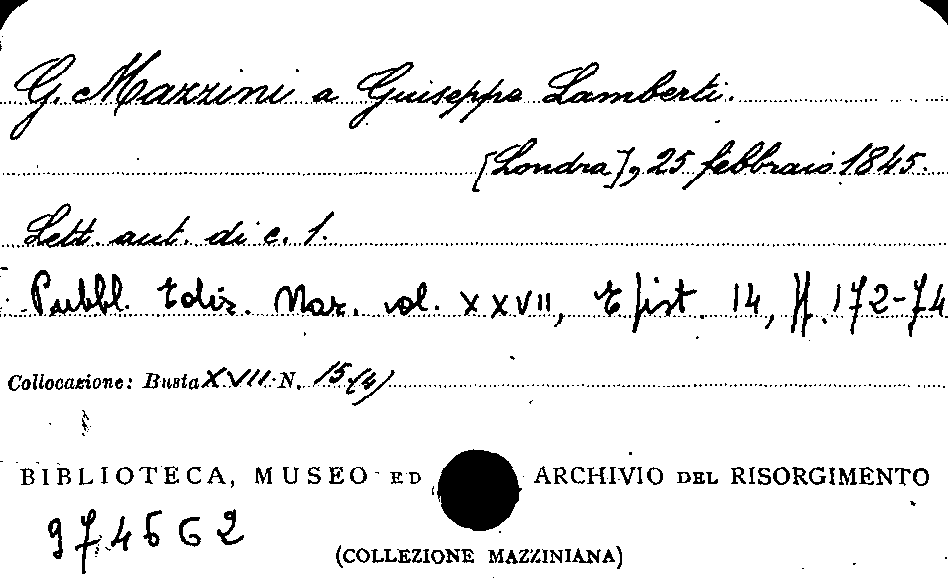 G. Mazzini a Giuseppe Lamberti.
[Londra], 25 febbraio 1845.
Lett. aut. di c. 1.
Pubbl. Ediz. Naz. vol. XXVII, Epist. 14, pp. 172-74
Collocazione: Busta XVII N. 15 (4)
BIBLIOTECA, MUSEO ED ARCHIVIO DEL RISORGIMENTO
974562
(COLLEZIONE MAZZINIANA)